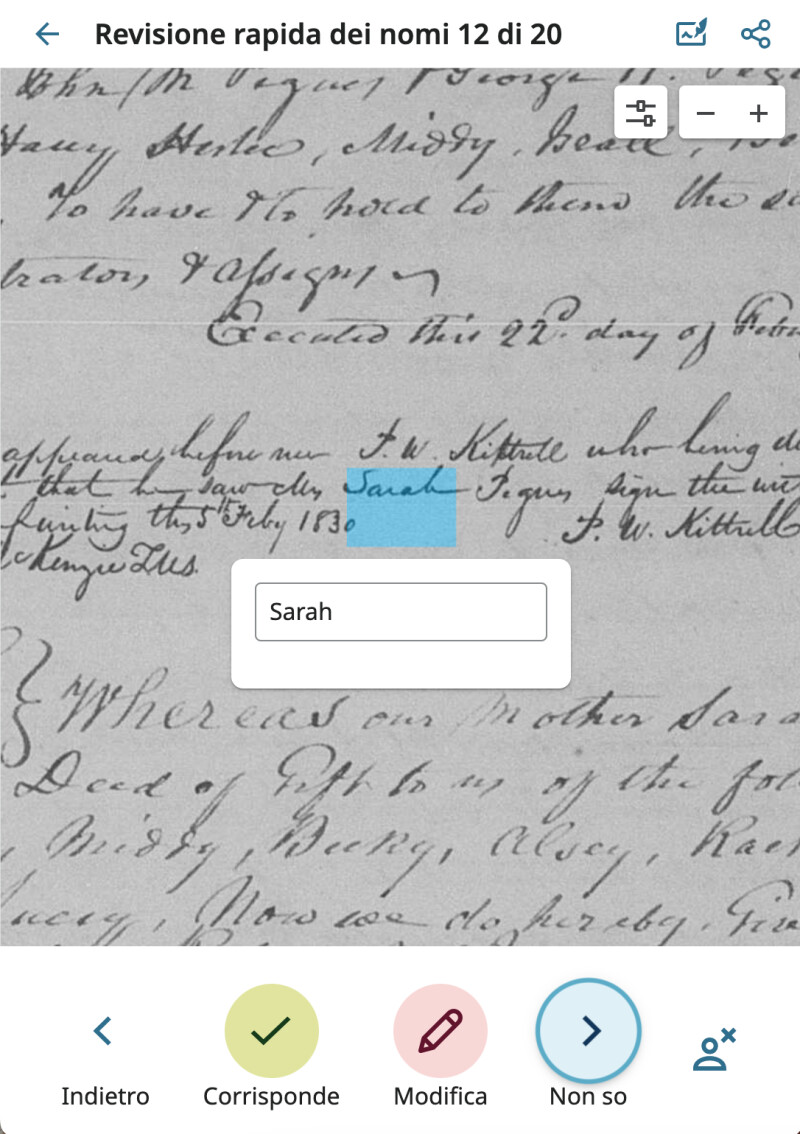 Revisione rapida dei nomi 12 di 20
John M Pegues George H.
Harry Hester, Middy, Beall,
To have & to hold to them the
trators & assigns
Executed this 22d. day of Febru
appeared before me F. W. Kittrell who being d
that he saw Mrs Sarah Pegues sign the wit
this 5th Feby 1830 F. W. Kittrell
cKenzie
Sarah
Whereas our Mother Sara
Deed of Gift to us of the fol
, Middy, Becky, Alsey, Rach
Now we do hereby, Give
Indietro
Corrisponde
Modifica
Non so